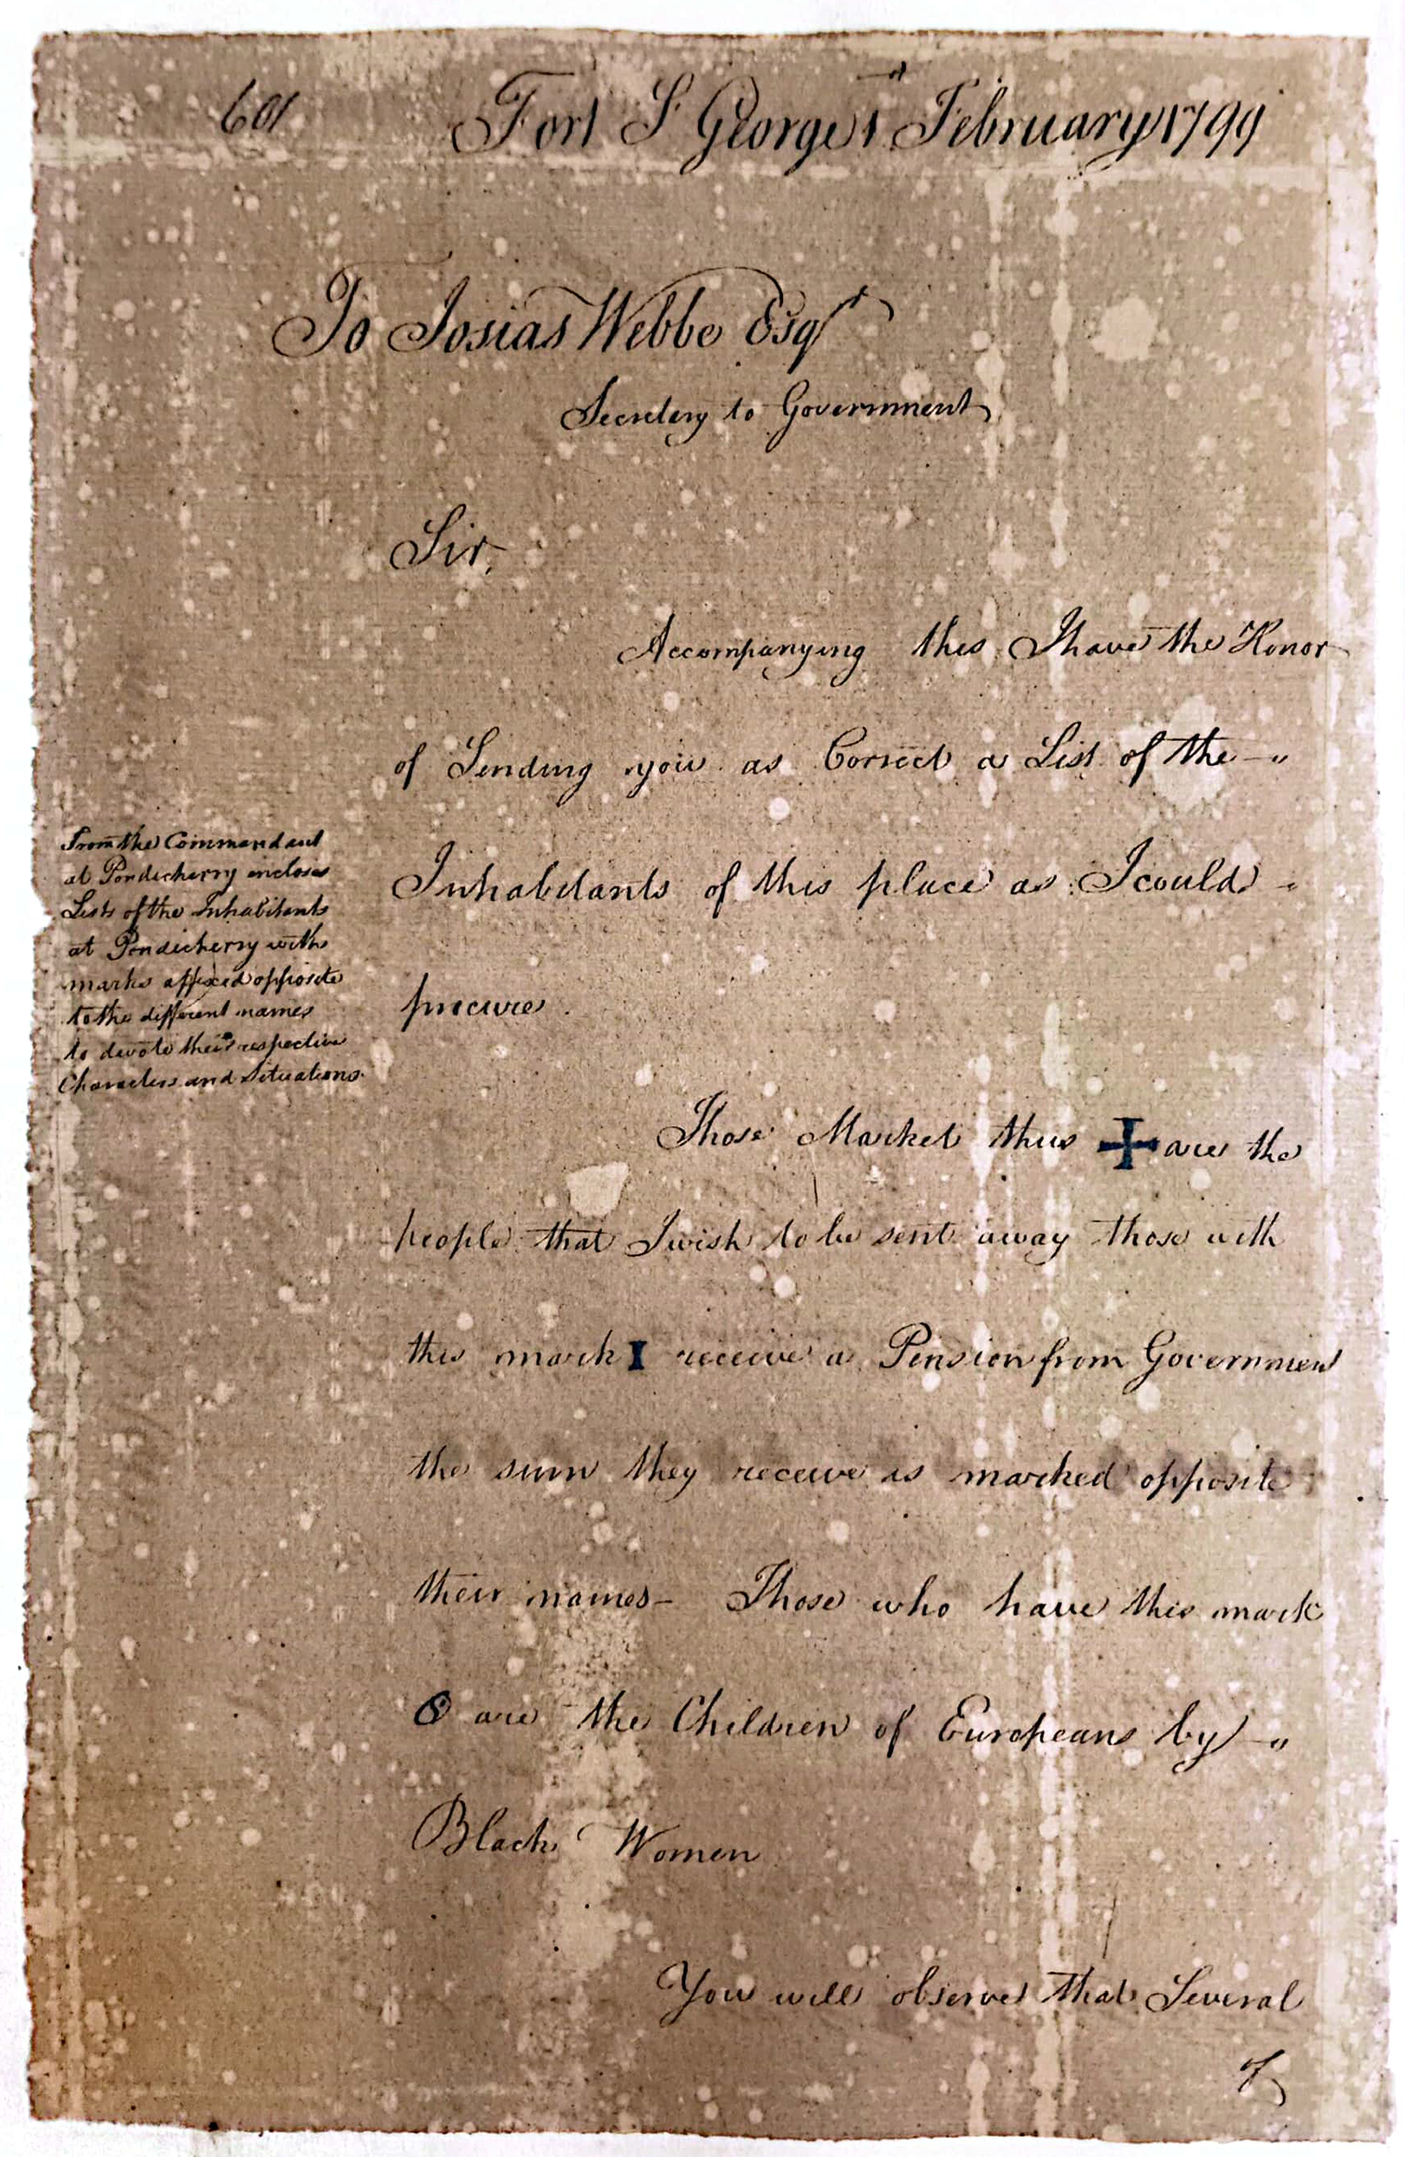 601 Fort St George 1st February 1799
To Josias Webbe Esqr
Secretary to Government
Sir,
Accompanying this I have the Honor
of Sending you as Correct a List of the
Inhabitants of this place as I could
procure.
From the Commandant
at Pondicherry encloses
Lists of the Inhabitants
at Pondicherry with
marks affixed opposite
to the different names
to devote their respective
Characters and Situations.
Those Market thus + are the
people that I wish to be sent away those with
this mark I receive a Pension from Governmen
the sum they receive is marked opposite
their names - Those who have this mark
O are the Children of Europeans by
Black Women
You will observe that Several
of